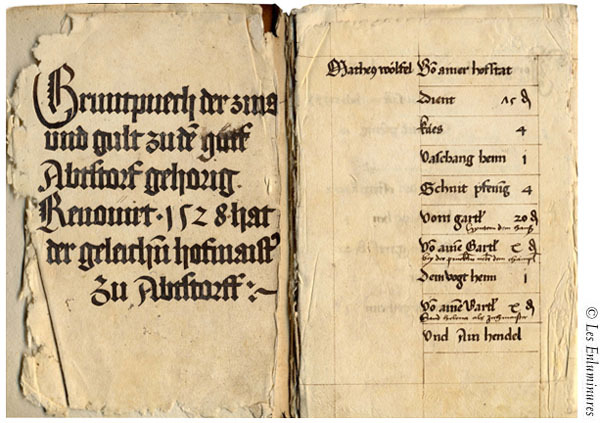 Gruntpuech der zins
und gult zu dē gutt
Abtstorf gehorig.
Renouirt · 1528 · hat
der geleichn̄ hofmaist̄
Zu Abtstorff :~
Mathe9 wölfel Vō ainer hofstat
dient 15 ₰
kaes 4
Vaschang henn 1
Schnit pfenig 4
Vom gartl̄ 20 ₰
hyndten dem haus
Vō aine Gartl̄ x ₰
bey der
Dem vogt henn 1
Vō ainē Gartl̄ x ₰
Und Ain hendel
© Les Enluminures